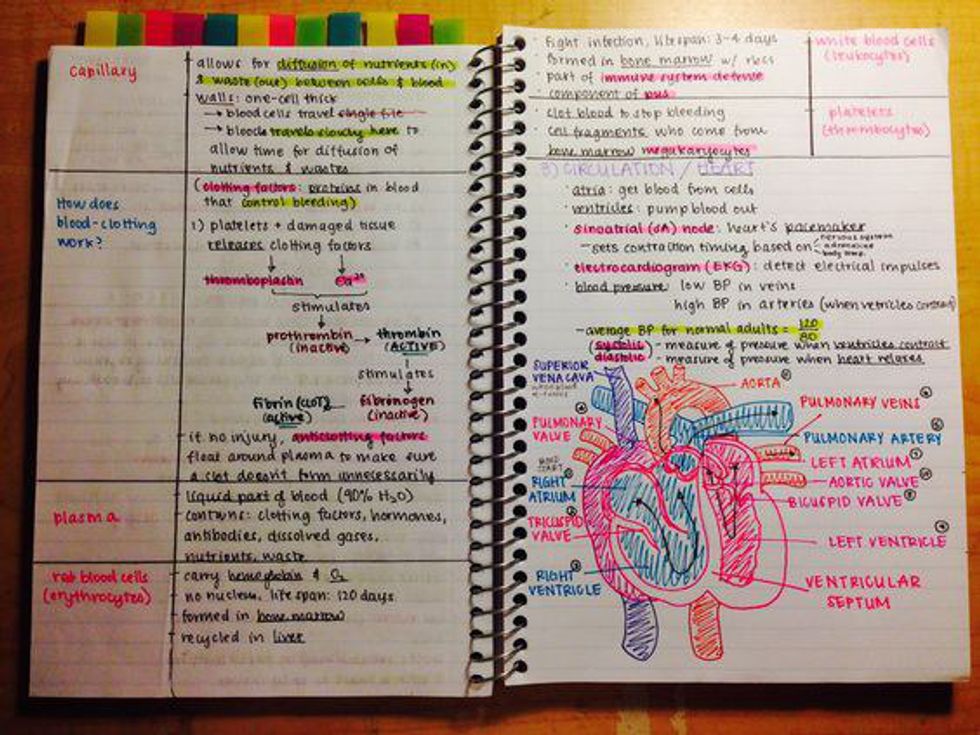 capillary
allows for diffusion of nutrients (in)
& waste (out) between cells & blood
walls: one-cell thick
→ blood cells travel single file
→ blood travels slowly here to
allow time for diffusion of
nutrients & wastes
How does
blood-clotting
work?
(clotting factors: proteins in blood
that control bleeding)
1) platelets + damaged tissue
releases clotting factors
thromboplastin Ca²⁺
stimulates
prothrombin → thrombin
(inactive) (ACTIVE)
stimulates
fibrin (CLOT) ← fibronogen
(active) (inactive)
if no injury, anticlotting factors
float around plasma to make sure
a clot doesn't form unnecessarily
plasma
liquid part of blood (90% H₂O)
contains: clotting factors, hormones,
antibodies, dissolved gases,
nutrients, waste
red blood cells
(erythrocytes)
carry hemoglobin & O₂
no nucleus, life span: 120 days
formed in bone marrow
recycled in liver
· fight infection, lifespan: 3-4 days
formed in bone marrow w/ rbcs
· part of immune system defense
· component of pus
white blood cells
(leukocytes)
· clot blood to stop bleeding
· cell fragments who come from
bone marrow megakaryocytes
platelets
(thrombocytes)
3) CIRCULATION / HEART
· atria: get blood from cells
· ventricles: pump blood out
· sinoatrial (SA) node: heart's pacemaker
- sets contraction timing based on
nervous system
adrenaline
body temp.
· electrocardiogram (EKG): detect electrical impulses
· blood pressure: low BP in veins
high BP in arteries (when vetricles contract)
- average BP for normal adults = 120
80
(systolic - measure of pressure when ventricles contract
diastolic) - measure of pressure when heart relaxes
SUPERIOR
VENA CAVA
AORTA
PULMONARY VEINS
PULMONARY
VALVE
PULMONARY ARTERY
START
LEFT ATRIUM
RIGHT
ATRIUM
AORTIC VALVE
BICUSPID VALVE
TRICUSPID
VALVE
LEFT VENTRICLE
RIGHT
VENTRICLE
VENTRICULAR
SEPTUM